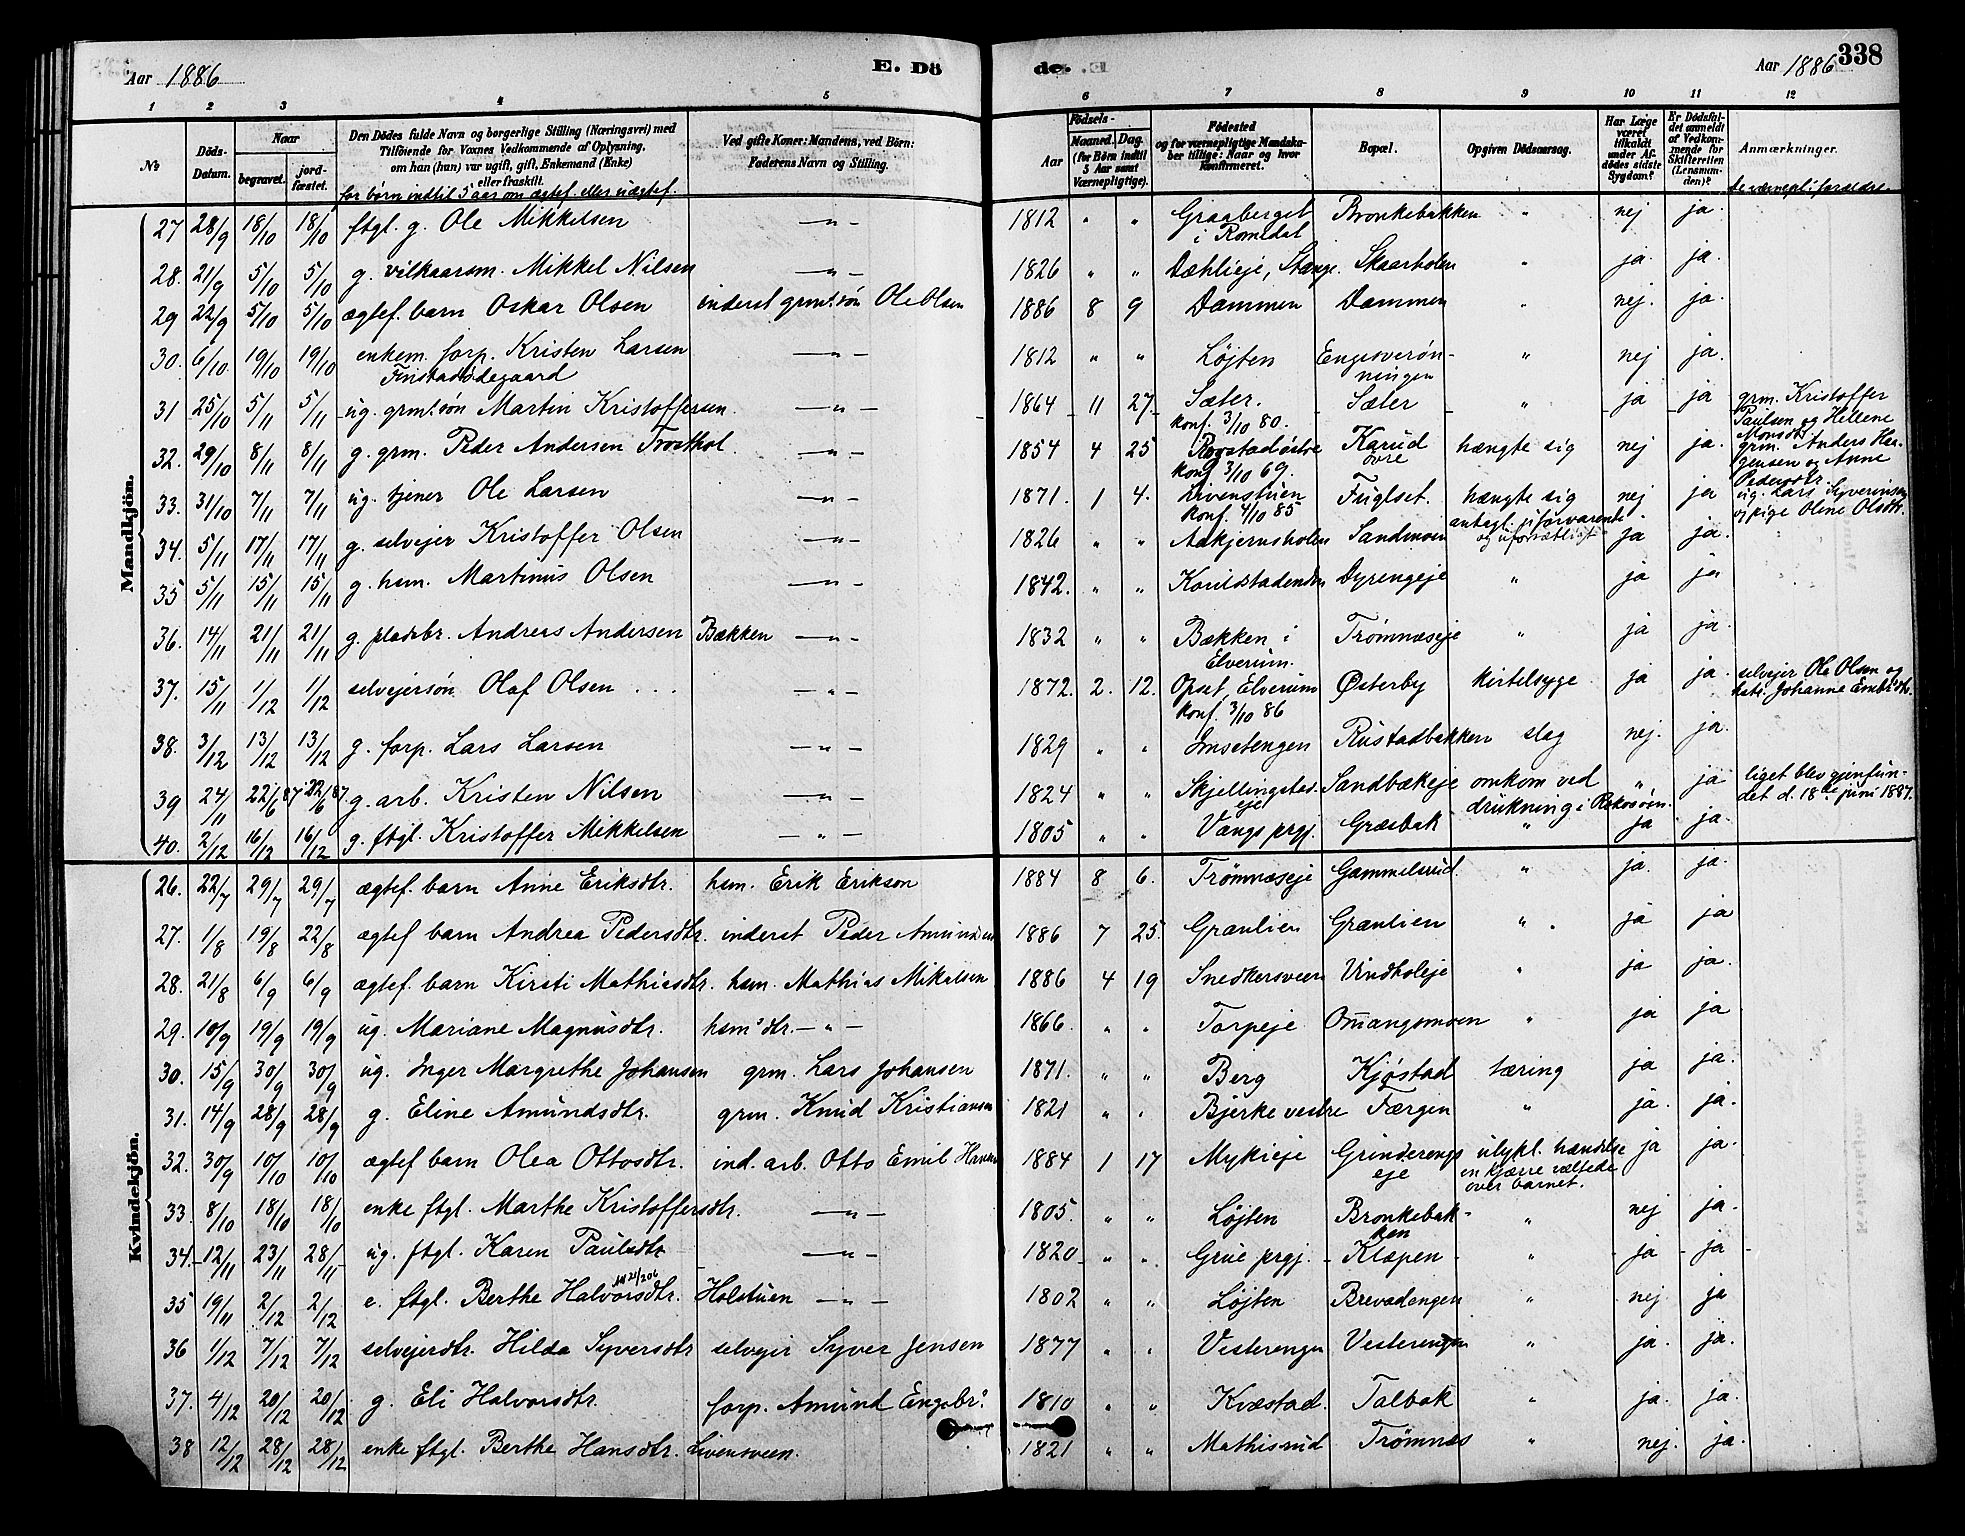 Aar 1886
E. Dö
de.
Aar 1886
338
1 2 3 4 5 6 7 8 9 10 11 12
No
Döds-Datum.
Naar
begravet.
jord-fæstet.
Den Dödes fulde Navn og borgerlige Stilling (Næringsvei) med
Tilföiende for Voxnes Vedkommende af Oplysning,
om han (hun) var ugift, gift, Enkemand (Enke)
eller fraskilt.
for börn indtil 5 aar om ægtef. eller uægtef.
Ved gifte Koner: Mandens, ved Börn:
Faderens Navn og Stilling.
Födsels-
Aar
Maaned. Dag.
(for Börn indtil 5 Aar samt Værnepligtige).
Födested
og for værnepligtige Mandska-
ber tillige: Naar og hvor
konfirmeret.
Bopæl.
Opgiven Dödsaarsag.
Har Læge været tilkaldt under Afdödes sidste Sygdom?
Er Dödsfaldet anmeldt af Vedkommende for Skifteretten (Lensmanden)?
Anmærkninger.
de værnepl. forældre
Mandkjön.
27 28/9 18/10 18/10 ftgl. g. Ole Mikkelsen —"— 1812 " " Graaberget i Romedal Bronkebakken " nej ja.
28. 21/9 5/10 5/10 g. vilkaarsm. Mikkel Nilsen —"— 1826 " " Dæhlieje, Stange. Skaarholen " ja. ja.
29 22/9 5/10 5/10 ægtef. barn Oskar Olsen inderst grm.søn Ole Olsen 1886 8 9 Dammen Dammen " nej. ja.
30. 6/10 19/10 19/10 enkem. forp. Kristen Larsen Finstadødegaard —"— 1812 " " Løjten Engesverønningen " nej ja.
31 25/10 5/11 5/11 ug. grmsøn Martin Kristoffersen. —"— 1864 11 27 Sæter. konf. 3/10 80. Sæter " ja ja grm. Kristoffer Paulsen og Hellene Monsdtr.
32. 29/10 8/11 8/11 g. grm. Peder Andersen Trosthol. —"— 1854 4 25 konf. 3/10 69. Karud øvre hængte sig nej ja. grm. Anders og Anne Pedersdtr.
33. 31/10 7/11 7/11 ug. tjener Ole Larsen —"— 1871. 1 4. Livenstuen konf. 4/10 85 Fuglset. hængte sig antagl. uforvarende og uforsætligt nej ja ug. Lars Syverinsen og pige Oline Olsdtr.
34. 5/11 17/11 17/11 g. selvejer Kristoffer Olsen —"— 1826 " " Aakjernsholen Sandmoen ja ja.
35 5/11 15/11 15/11 g. hsm. Martinus Olsen —"— 1842. " " Dyrengeje " ja ja
36. 14/11 21/11 21/11 g. pladsbr. Andreas Andersen Bækken —"— 1832 " " Bækken i Elverum. Trømnæseje " ja ja.
37. 15/11 1/12 1/12 selvejersøn Olaf Olsen . . . —"— 1872. 2. 12. Opset, Elverum konf. 3/10 86 Østerby kirtelsyge ja ja. selvejer Ole Olsen og Johanne Embr.dtr.
38. 3/12 13/12 13/12 g. forp. Lars Larsen —"— 1829 " " Imsetengen Rustadbakken slag nej. ja.
39 24/11 22/6 87 22/6 87 g. arb. Kristen Nilsen —"— 1824 " " Skjellingstad. eje Sandbækeje omkom ved drukning i Rokosøen. " ja liget blev gjenfundet d. 18de juni 1887.
40. 2/12 16/12 16/12 g. ftgl. Kristoffer Mikkelsen —"— 1805 " " Vangs prgj. Græsbak " ja ja.
Kvindekjön.
26. 22/7 29/7 29/7 ægtef. barn Anne Eriksdtr. hsm. Erik Erikson 1884 8 6. Trømnæseje Gammelsrud. " ja. ja.
27. 1/8 19/8 22/8 ægtef barn Andrea Pedersdtr. inderst Peder Amundsen 1886 7 25. Grænlien Grænlien " ja ja
28. 21/8 6/9 6/9 ægtef. barn Kirsti Mathiasdtr. hsm. Mathias Mikalsen 1886 4 19 Snedkersveen Vindholeje " ja ja.
29. 10/9 19/9 19/9 ug. Mariane Magnusdtr. hsms dtr. —"— 1866. " " Torpeje Omangsmoen " ja ja.
30. 15/9 30/9 30/9 ug. Inger Margrethe Johansen grm. Lars Johansen 1871. " " Berg Kjøstad tæring ja ja.
31. 14/9 28/9 28/9 g. Eline Amundsdtr. grm. Knud Kristiansen 1821 " " Bjerke vestre Færgen " ja. ja.
32. 30/9 10/10 10/10 ægtef barn Olea Ottosdtr. ind. arb. Otto Emil Hansen 1884 1 17 Mykleje Grinderengs eje ulykl. hændelse en kjærre væltede over barnet. ja ja.
33. 8/10 18/10 18/10 enke ftgl. Marthe Kristoffersdtr. —"— 1805. " " Løjten Bronkebakken " nej ja.
34. 12/11 23/11 28/11 ug. ftgl. Karen Paulsdtr —"— 1820 " " Grue prgj. Klæpen " ja ja
35 19/11 2/12 2/12 e. ftgl. Berthe Halvorsdtr. Holstuen —"— 1802 " " Løjten Brevadengen " nej ja
36 1/12 7/12 7/12 selvejerdtr. Hilda Syversdtr selvejer Syver Jensen 1877 " " Vesterengen Vesterengen " ja. ja.
37. 4/12 20/12 20/12 g. Eli Halvorsdtr. forp. Amund Engebr. 1810 " " Kvæstad. Talbak " ja. ja.
38 12/12 28/12 28/12 enke ftgl. Berthe Hansdtr. Livensveen. 1821 " " Mathisrud Trømnes " nej. ja.